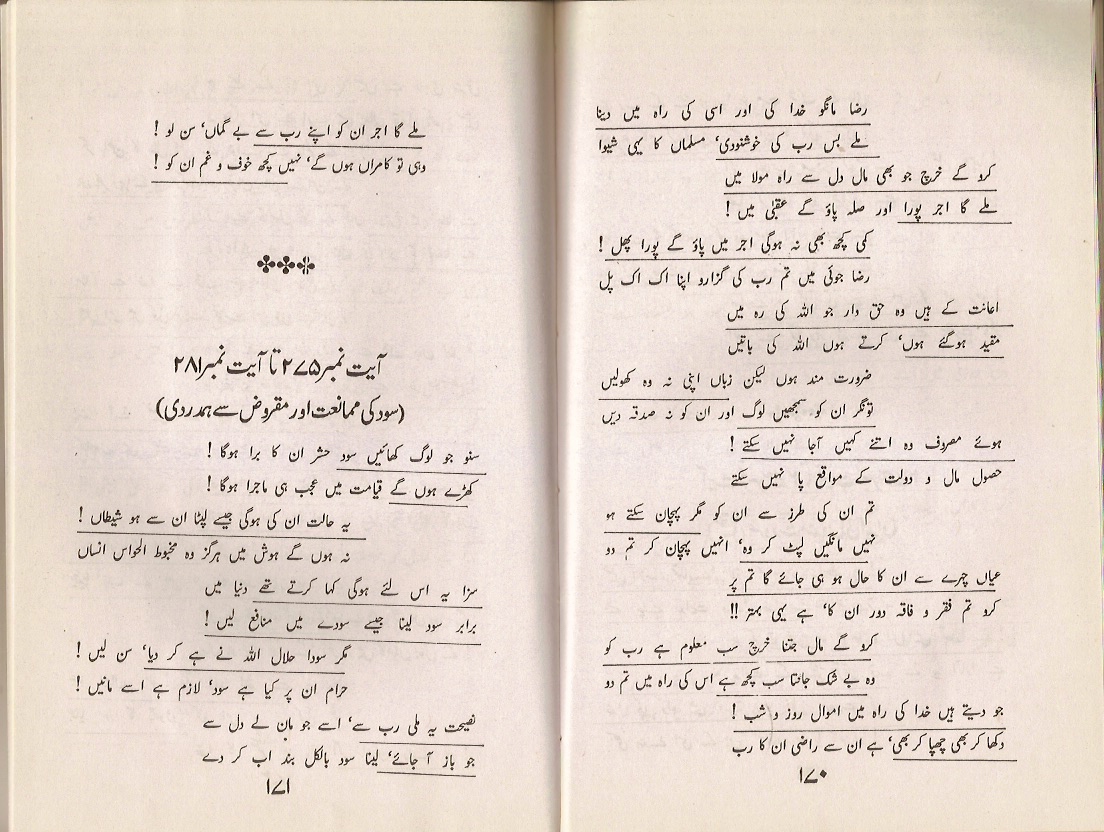 رضا مانگو خدا کی اور اسی کی راہ میں دینا
ملے بس رب کی خوشنودی، مسلماں کا یہی شیوا
کرو گے خرچ جو بھی مال دل سے راہ مولا میں
ملے گا اجر پورا اور صلہ پاؤ گے عقبٰی میں !
کمی کچھ بھی نہ ہوگی اجر میں پاؤ گے پورا پھل !
رضا جوئی میں تم رب کی گزارو اپنا اک اک پل
اعانت کے ہیں وہ حق دار جو اللہ کی رہ میں
مقید ہوگئے ہوں، کرتے ہوں اللہ کی باتیں
ضرورت مند ہوں لیکن زباں اپنی نہ وہ کھولیں
تونگر ان کو سمجھیں لوگ اور ان کو نہ صدقہ دیں
ہوئے مصروف وہ اتنے کہیں آجا نہیں سکتے !
حصول مال و دولت کے مواقع پا نہیں سکتے
تم ان کی طرز سے ان کو مگر پہچان سکتے ہو
نہیں مانگیں لپٹ کر وہ، انہیں پہچان کر تم دو
عیاں چہرے سے ان کا حال ہو ہی جائے گا تم پر
کرو تم فقر و فاقہ دور ان کا، ہے یہی بہتر !!
کرو گے مال جتنا خرچ سب معلوم ہے رب کو
وہ بے شک جانتا سب کچھ ہے اس کی راہ میں تم دو
جو دیتے ہیں خدا کی راہ میں اموال روز و شب !
دکھا کر بھی چھپا کر بھی، ہے ان سے راضی ان کا رب
۱۷۰
ملے گا اجر ان کو اپنے رب سے بے گماں، سن لو !
وہی تو کامراں ہوں گے، نہیں کچھ خوف و غم ان کو !
آیت نمبر ۲۷۵ تا آیت نمبر ۲۸۱
(سود کی ممانعت اور مقروض سے ہمدردی)
سنو جو لوگ کھائیں سود حشر ان کا برا ہوگا !
کھڑے ہوں گے قیامت میں عجب ہی ماجرا ہوگا !
یہ حالت ان کی ہوگی جیسے لپٹا ان سے ہو شیطاں !
نہ ہوں گے ہوش میں ہرگز وہ مخبوط الحواس انساں
سزا یہ اس لئے ہوگی کہا کرتے تھے دنیا میں
برابر سود لینا جیسے سودے میں منافع لیں !
مگر سودا حلال اللہ نے ہے کر دیا، سن لیں !
حرام ان پر کیا ہے سود، لازم ہے اسے مانیں !
نصیحت یہ ملی رب سے، اسے جو مان لے دل سے
جو باز آ جائے، لینا سود بالکل بند اب کر دے
۱۷۱